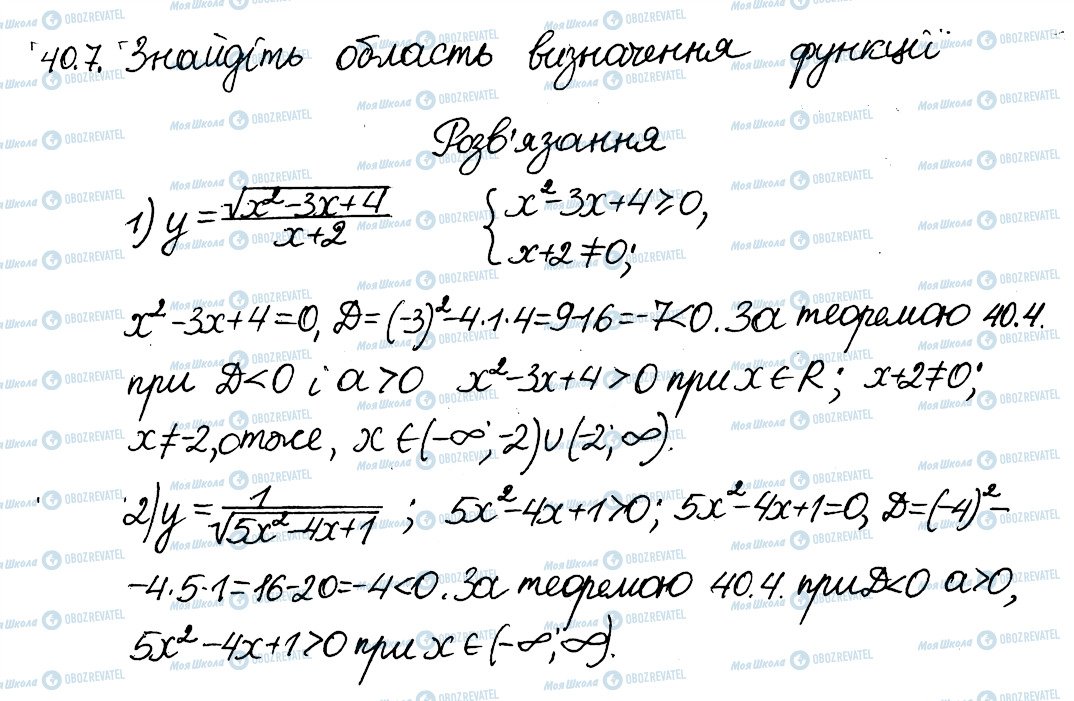 40.7. Знайдіть область визначення функції
Розв'язання
1) y = √(x² - 3x + 4) / (x + 2) { x² - 3x + 4 ≥ 0, x + 2 ≠ 0;
x² - 3x + 4 = 0, D = (-3)² - 4·1·4 = 9-16 = -7 < 0. За теоремою 40.4.
при D < 0 і a > 0 x² - 3x + 4 > 0 при x ∈ R; x + 2 ≠ 0;
x ≠ -2, отже, x ∈ (-∞; -2) ∪ (-2; ∞).
2) y = 1 / √(5x² - 4x + 1) ; 5x² - 4x + 1 > 0; 5x² - 4x + 1 = 0, D = (-4)² -
- 4·5·1 = 16 - 20 = -4 < 0. За теоремою 40.4. при D < 0 a > 0,
5x² - 4x + 1 > 0 при x ∈ (-∞; ∞).
Моя Школа OBOZREVATEL